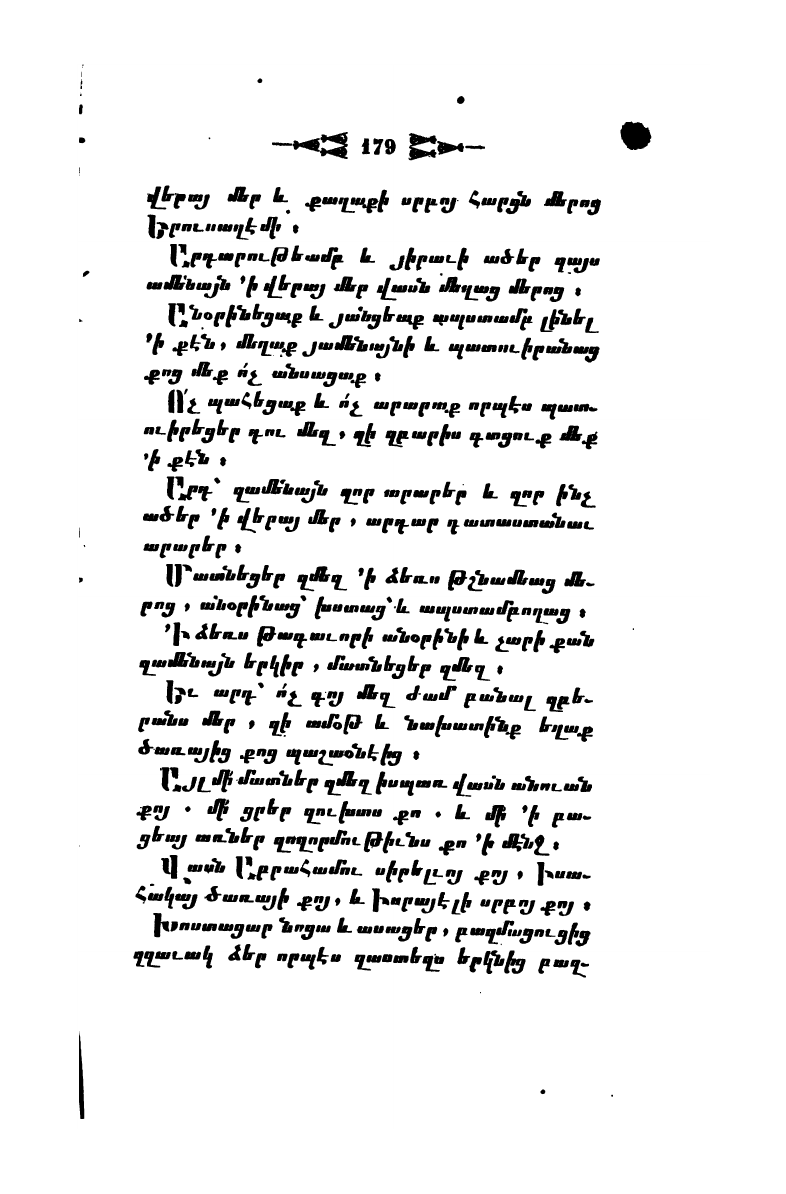 179
վերայ մեր և քաղաքի սրբոյ Հարցն մերոց
Երուսաղէմի ։
Արդարութեամբ և յիրաւի ածեր զայս
ամենայն ՚ի վերայ մեր վասն մեղաց մերոց ։
Անօրինեցաք և յանցեաք ապստամբ լինել
՚ի քէն, մեղաք յամենայնի և պատուիրանաց
քոց մեք ո՛չ անսացաք ։
Ո՛չ պահեցաք և ո՛չ արարաք որպէս պատ֊
ուիրեցեր դու մեզ, զի զբարիս գտցուք մեք
՚ի քէն ։
Արդ՝ զամենայն զոր արարեր և զոր ինչ
ածեր ՚ի վերայ մեր, արդար դատաստանաւ
արարեր ։
Մատնեցեր զմեզ ՚ի ձեռս թշնամեաց մե֊
րոց, անօրինաց՝ խստաց՝ և ապստամբողաց ։
՚Ի ձեռս թագաւորի անօրինի և չարի քան
զամենայն երկիր, մատնեցեր զմեզ ։
Եւ արդ՝ ո՛չ գոյ մեզ ժամ բանալ զբե֊
րանս մեր, զի ամօթ և նախատինք եղաք
ծառայից քոց պաշտօնէից ։
Այլ մի մատներ զմեզ իսպառ վասն անուան
քոյ. մի ցրեր զուխտս քո. և մի ՚ի բա֊
ցեայ առներ զողորմութիւնս քո ՚ի մէնջ ։
Վասն Աբրահամու սիրելւոյ քոյ, Իսա֊
հակայ ծառայի քոյ, և Իսրայէլի սրբոյ քոյ ։
Խոստացար նոցա և ասացեր, բազմացուցից
զզաւակ ձեր որպէս զաստեղս երկնից բազ֊